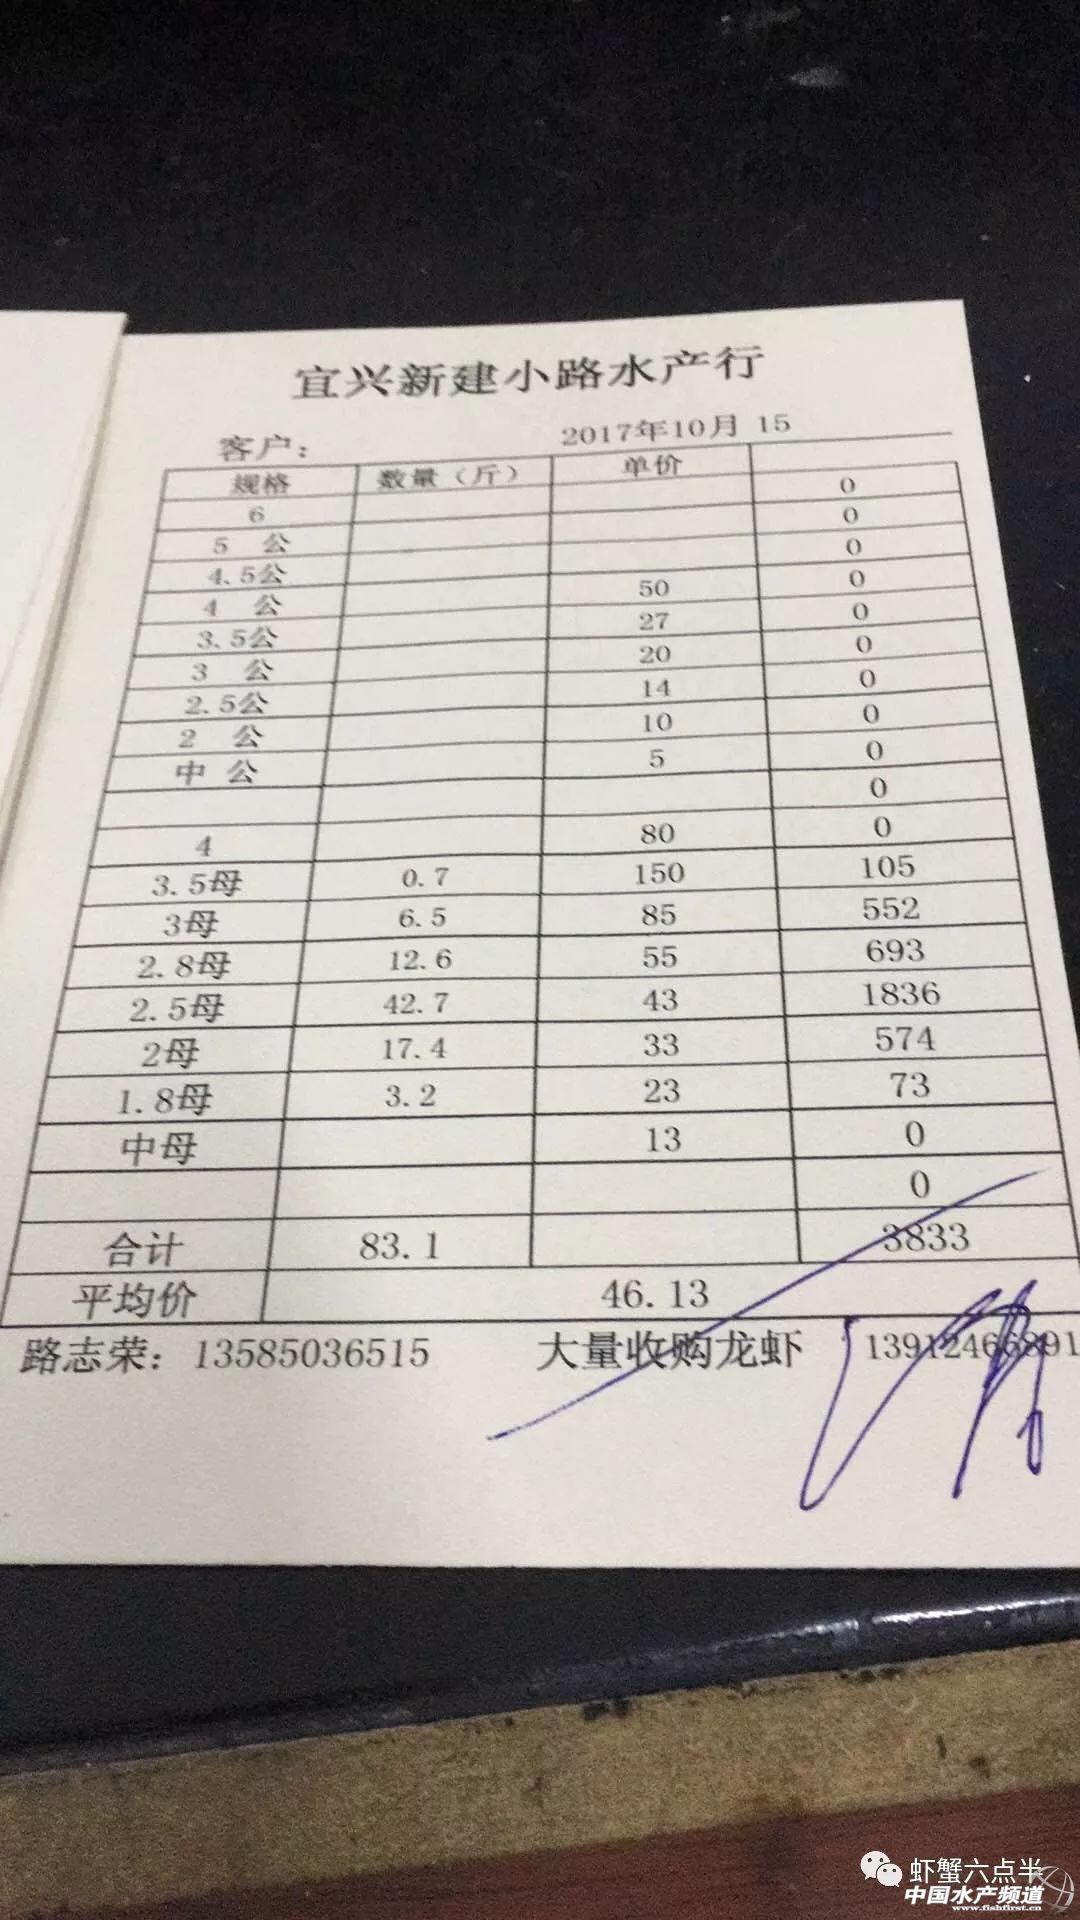 宜兴新建小路水产行
客户： 2017年10月 15
规格 数量（斤） 单价 0
6 0
5 公 0
4.5公 50 0
4 公 27 0
3.5公 20 0
3 公 14 0
2.5公 10 0
2 公 5 0
中 公 0
4 80 0
3.5母 0.7 150 105
3母 6.5 85 552
2.8母 12.6 55 693
2.5母 42.7 43 1836
2母 17.4 33 574
1.8母 3.2 23 73
中母 13 0
0
合计 83.1 3833
平均价 46.13
路志荣：13585036515 大量收购龙虾 13912466891
虾蟹六点半
中国水产频道
www.fishfirst.cn